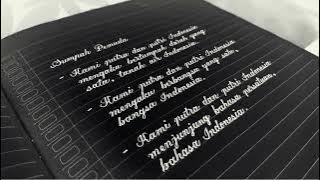 Sumpah Pemuda
- Kami putra dan putri Indonesia
mengaku bertumpah darah yang
satu, tanah air Indonesia.
- Kami putra dan putri Indonesia
mengaku berbangsa yang satu,
bangsa Indonesia.
- Kami putra dan putri Indonesia
menjunjung bahasa persatuan,
bahasa Indonesia.